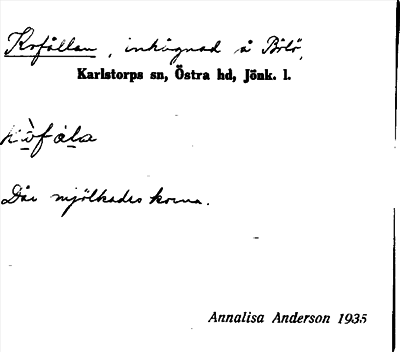 Kofållan, inhägnad å Bölö,
Karlstorps sn, Östra hd, Jönk. l.
kòfála
Där mjölkades korna.
Annalisa Anderson 1935